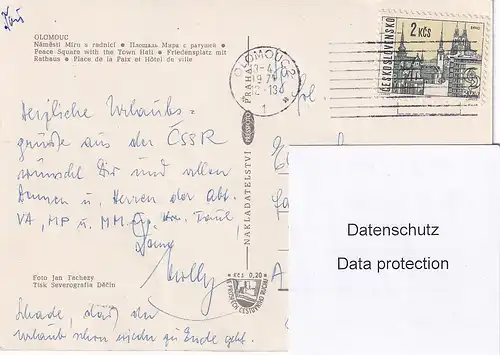 OLOMOUC
Náměstí Míru s radnicí • Площадь Мира с ратушей •
Peace Square with the Town Hall • Friedensplatz mit
Rathaus • Place de la Paix et Hôtel de ville
Herzliche Urlaubs-
grüße aus der ČSSR
wünscht Dir und allen
Damen u. Herren der Abt.
VA, MP u. MM
Molly
Foto Jan Tachezy
Tisk Severografia Děčín
Schade, daß der
Urlaub schon wieder zu Ende geht.
NAKLADATELSTVÍ
PRAHA
KČS 0,20
OLOMOUC 2
1
2 KČS
ČESKOSLOVENSKO
Datenschutz
Data protection